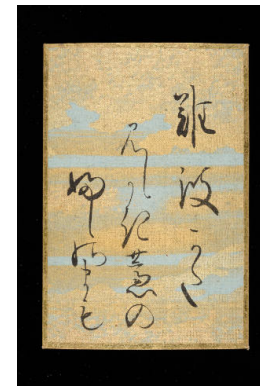 難波かた
みしかき蘆の
ふしのまも